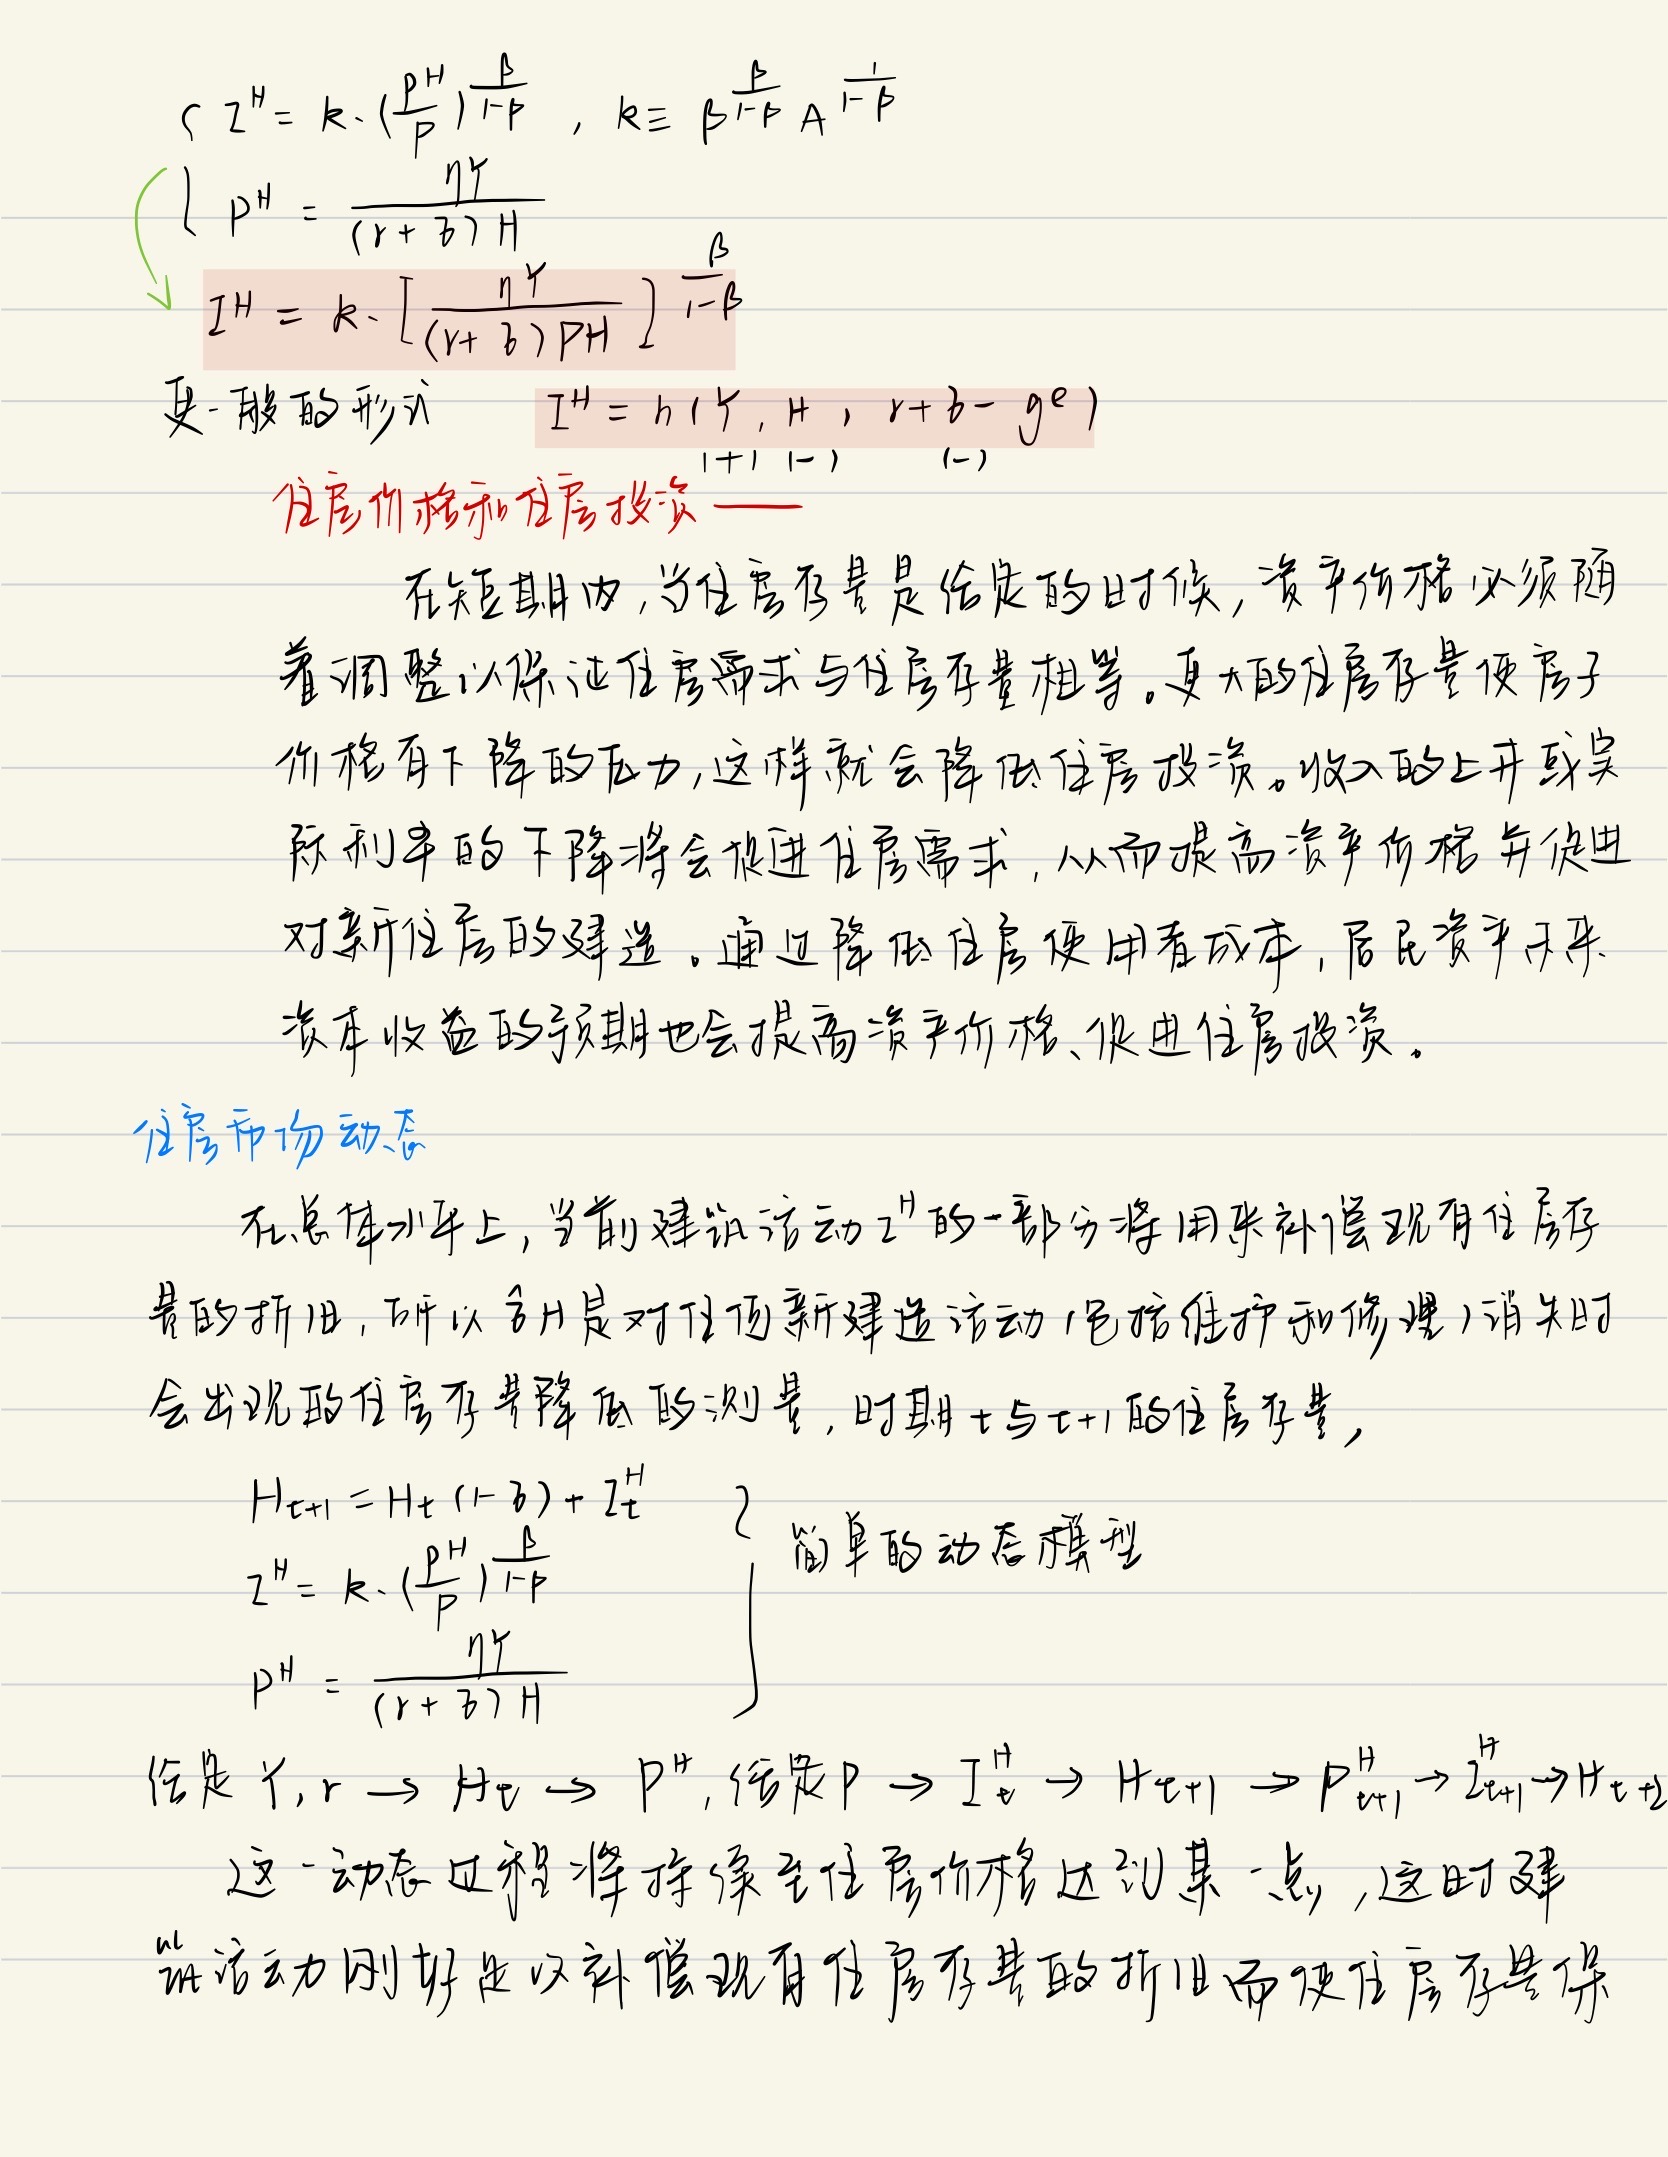 I^H = k·(P^H/P)^(β/(1-β)) , k ≡ β^(β/(1-β)) A^(1/(1-β))
P^H = ηY/((r+δ)H)
I^H = k·[ηY/((r+δ)PH)]^(β/(1-β))
更一般的形式 I^H = h(Y, H, r+δ-g^e)
(+) (-) (-)
住房价格和住房投资——
在短期内,当住房存量是给定的时候,资产价格必须随
着调整以保证住房需求与住房存量相等。更大的住房存量使房子
价格有下降的压力,这样就会降低住房投资。收入的上升或实
际利率的下降将会促进住房需求,从而提高资产价格并促进
对新住房的建造。通过降低住房使用者成本,居民资产未来
资本收益的预期也会提高资产价格、促进住房投资。
住房市场动态
在总体水平上,当前建筑活动I^H的一部分将用来补偿现有住房存
量的折旧,所以δH是对任何新建造活动(包括维护和修理)消失时
会出现的住房存量降低的测量,时期t与t+1的住房存量,
H_{t+1} = H_t(1-δ) + I_t^H
I^H = k·(P^H/P)^(β/(1-β)) 简单的动态模型
P^H = ηY/((r+δ)H)
给定Y,r → H_t → P^H,给定P → I_t^H → H_{t+1} → P_{t+1}^H → I_{t+1}^H → H_{t+2}
这一动态过程将持续至住房价格达到某一点,这时建
筑活动刚好足以补偿现有住房存量的折旧而使住房存量保